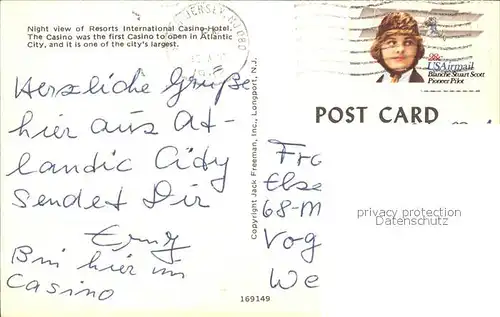 Night view of Resorts International Casino-Hotel.
The Casino was the first Casino to open in Atlantic
City, and it is one of the city's largest.
JERSEY
28c
USAirmail
Blanche Stuart Scott
Pioneer Pilot
POST CARD
Herzliche Grüße
hier aus At-
lantic City
Sendet Dir
Bin hier im
Casino
Copyright Jack Freeman, Inc., Longport, N.J.
68-M
Vog
We
privacy protection
Datenschutz
169149